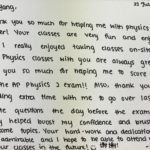 yang. 22 Jul
ank you so much for helping me with physics
er! Your classes are very fun and enj
I really enjoyed taking classes on-sit
Physics classes with you are always gre
you so much for helping me to score
the AP physics 2 exam!! Also, thank you
ding extra time with me to go over las
te questions the day before the exam
y helped boost my confidence and brus
ome topics. Your hard-work and dedicatio
admirable, and I hope to be able to attend
ur classes in the future!